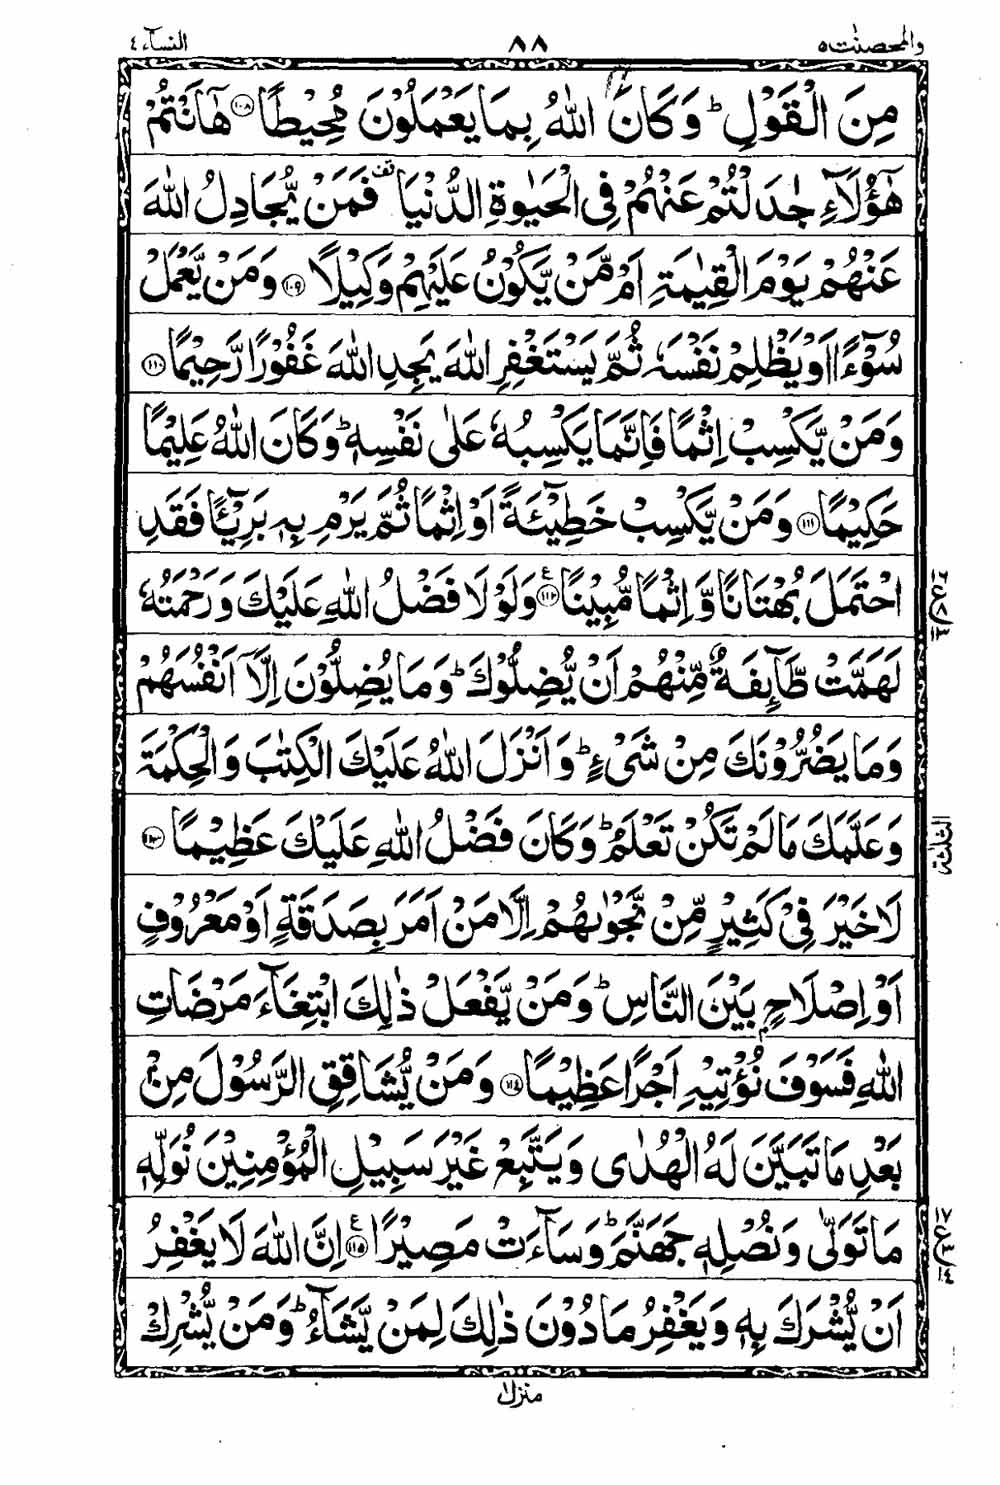 والمحصنٰت ٥ ٨٨ النسآء ٤
مِنَ الْقَوْلِ ؕ وَكَانَ اللّٰهُ بِمَا يَعْمَلُوْنَ مُحِيْطًا ﴿١٠٨﴾ هٰۤاَنْتُمْ
هٰۤؤُلَآءِ جٰدَلْتُمْ عَنْهُمْ فِى الْحَيٰوةِ الدُّنْيَا ۫ فَمَنْ يُّجَادِلُ اللّٰهَ
عَنْهُمْ يَوْمَ الْقِيٰمَةِ اَمْ مَّنْ يَّكُوْنُ عَلَيْهِمْ وَكِيْلًا ﴿١٠٩﴾ وَمَنْ يَّعْمَلْ
سُوْٓءًا اَوْ يَظْلِمْ نَفْسَهٗ ثُمَّ يَسْتَغْفِرِ اللّٰهَ يَجِدِ اللّٰهَ غَفُوْرًا رَّحِيْمًا ﴿١١٠﴾
وَمَنْ يَّكْسِبْ اِثْمًا فَاِنَّمَا يَكْسِبُهٗ عَلٰى نَفْسِهٖ ؕ وَكَانَ اللّٰهُ عَلِيْمًا
حَكِيْمًا ﴿١١١﴾ وَمَنْ يَّكْسِبْ خَطِيْٓئَةً اَوْ اِثْمًا ثُمَّ يَرْمِ بِهٖ بَرِيْٓئًا فَقَدِ
احْتَمَلَ بُهْتَانًا وَّاِثْمًا مُّبِيْنًا ﴿١١٢﴾ ع وَلَوْ لَا فَضْلُ اللّٰهِ عَلَيْكَ وَرَحْمَتُهٗ
لَهَمَّتْ طَّآئِفَةٌ مِّنْهُمْ اَنْ يُّضِلُّوْكَ ؕ وَمَا يُضِلُّوْنَ اِلَّاۤ اَنْفُسَهُمْ
وَمَا يَضُرُّوْنَكَ مِنْ شَىْءٍ ؕ وَاَنْزَلَ اللّٰهُ عَلَيْكَ الْكِتٰبَ وَالْحِكْمَةَ
وَعَلَّمَكَ مَا لَمْ تَكُنْ تَعْلَمُ ؕ وَكَانَ فَضْلُ اللّٰهِ عَلَيْكَ عَظِيْمًا ﴿١١٣﴾
الثلثة
لَا خَيْرَ فِىْ كَثِيْرٍ مِّنْ نَّجْوٰىهُمْ اِلَّا مَنْ اَمَرَ بِصَدَقَةٍ اَوْ مَعْرُوْفٍ
اَوْ اِصْلَاحٍۭ بَيْنَ النَّاسِ ؕ وَمَنْ يَّفْعَلْ ذٰلِكَ ابْتِغَآءَ مَرْضَاتِ
اللّٰهِ فَسَوْفَ نُؤْتِيْهِ اَجْرًا عَظِيْمًا ﴿١١٤﴾ وَمَنْ يُّشَاقِقِ الرَّسُوْلَ مِنْۢ
بَعْدِ مَا تَبَيَّنَ لَهُ الْهُدٰى وَيَتَّبِعْ غَيْرَ سَبِيْلِ الْمُؤْمِنِيْنَ نُوَلِّهٖ
مَا تَوَلّٰى وَنُصْلِهٖ جَهَنَّمَ ؕ وَسَآءَتْ مَصِيْرًا ﴿١١٥﴾ ع اِنَّ اللّٰهَ لَا يَغْفِرُ
اَنْ يُّشْرَكَ بِهٖ وَيَغْفِرُ مَا دُوْنَ ذٰلِكَ لِمَنْ يَّشَآءُ ؕ وَمَنْ يُّشْرِكْ
منزل ١